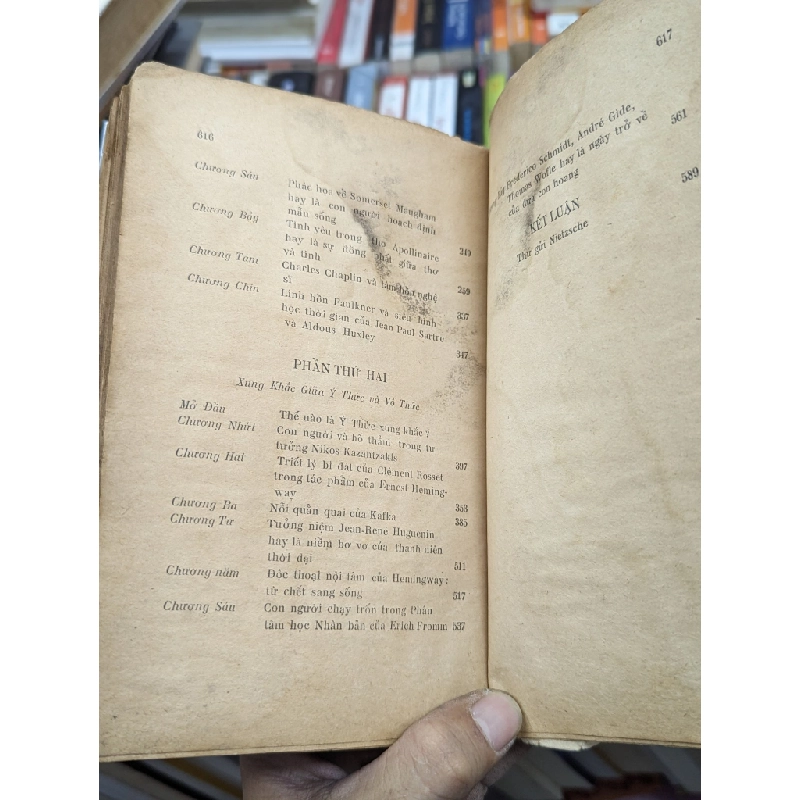 616
Chương Sáu
Phác họa về Somerse Maugham
hay là con người hoạch định
mẫu sống
349
Chương Bảy
Tình yêu trong thơ Apollinaire
hay là sự đồng nhất giữa thơ
và tình
259
Chương Tám
Charles Chaplin và tâm hồn nghệ
sĩ
337
Chương Chín
Linh hồn Faulkner và siêu hình
học thời gian của Jean Paul Sartre
và Aldous Huxley
347
PHẦN THỨ HAI
Xung Khắc Giữa Ý Thức và Vô Thức
Mở Đầu
Thế nào là Ý Thức xung khắc ?
Chương Nhứt
Con người và hố thẳm, trong tư
tưởng Nikos Kazantzakis
397
Chương Hai
Triết lý bi đát của Clément Rosset
trong tác phẩm của Ernest Heming-
way
353
Chương Ba
Nỗi quằn quại của Kafka
385
Chương Tư
Tưởng niệm Jean-René Huguenin
hay là niềm bơ vơ của thanh niên
thời đại
511
Chương năm
Độc thoại nội tâm của Hemingway:
từ chết sang sống
517
Chương Sáu
Con người chạy trốn trong Phân
tâm học Nhân bản của Erich Fromm 537
617
Frederico Schmidt, André Gide,
Thomas Wolfe hay là ngày trở về
của đứa con hoang
561
KẾT LUẬN
589
Thư gửi Nietzsche